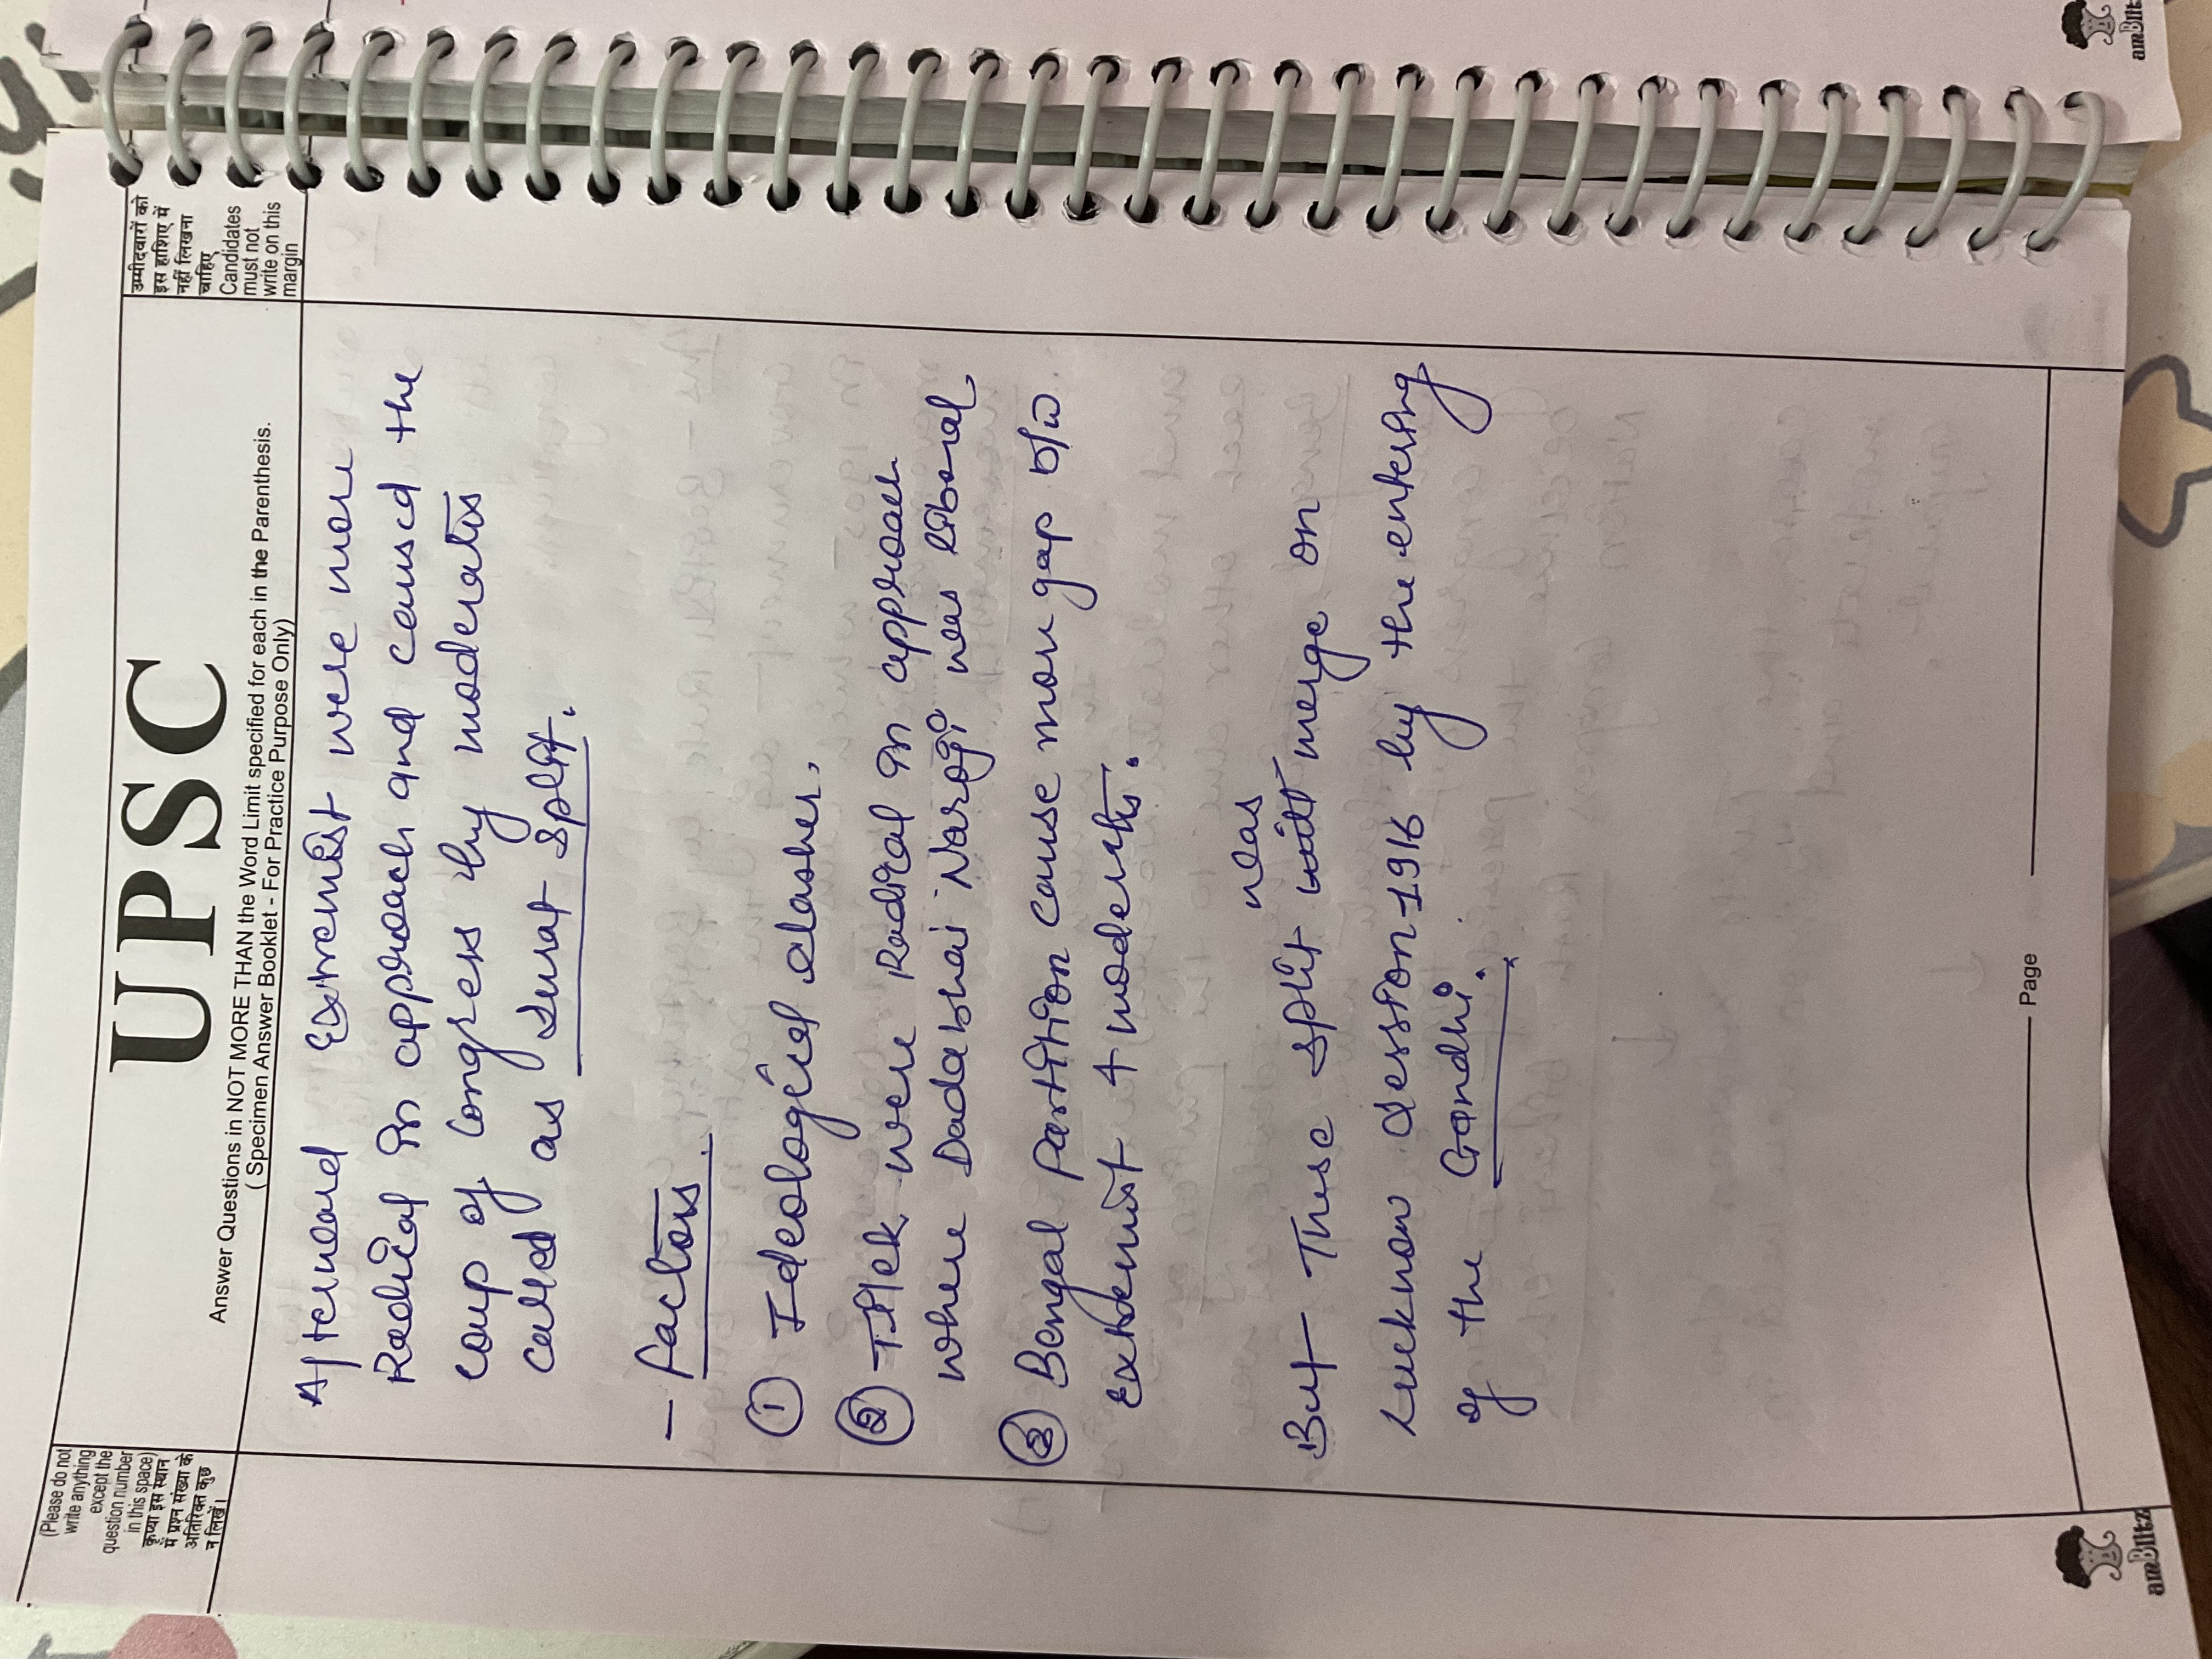 (Please do not
write anything
except the
question number
in this space)
कृप्या इस स्थान
में प्रश्न संख्या के
अतिरिक्त कुछ
न लिखें।
UPSC
Answer Questions in NOT MORE THAN the Word Limit specified for each in the Parenthesis.
( Specimen Answer Booklet - For Practice Purpose Only)
उम्मीदवारों को
इस हाशिए में
नहीं लिखना
चाहिए
Candidates
must not
write on this
margin
Afterward Extremist were more
Radical in approach and caused the
coup of Congress by moderates
called as Surat Split.
- factors.
① Ideological clashes.
② Tilek were Radical in approach
where Dadabhai Naroji was liberal
③ Bengal Partition cause more gap b/w
extremist & moderates.
was
But These split will merge on
Lucknow session-1916 by the entering
of the Gandhi.
Page
amBlitz
amBlitz